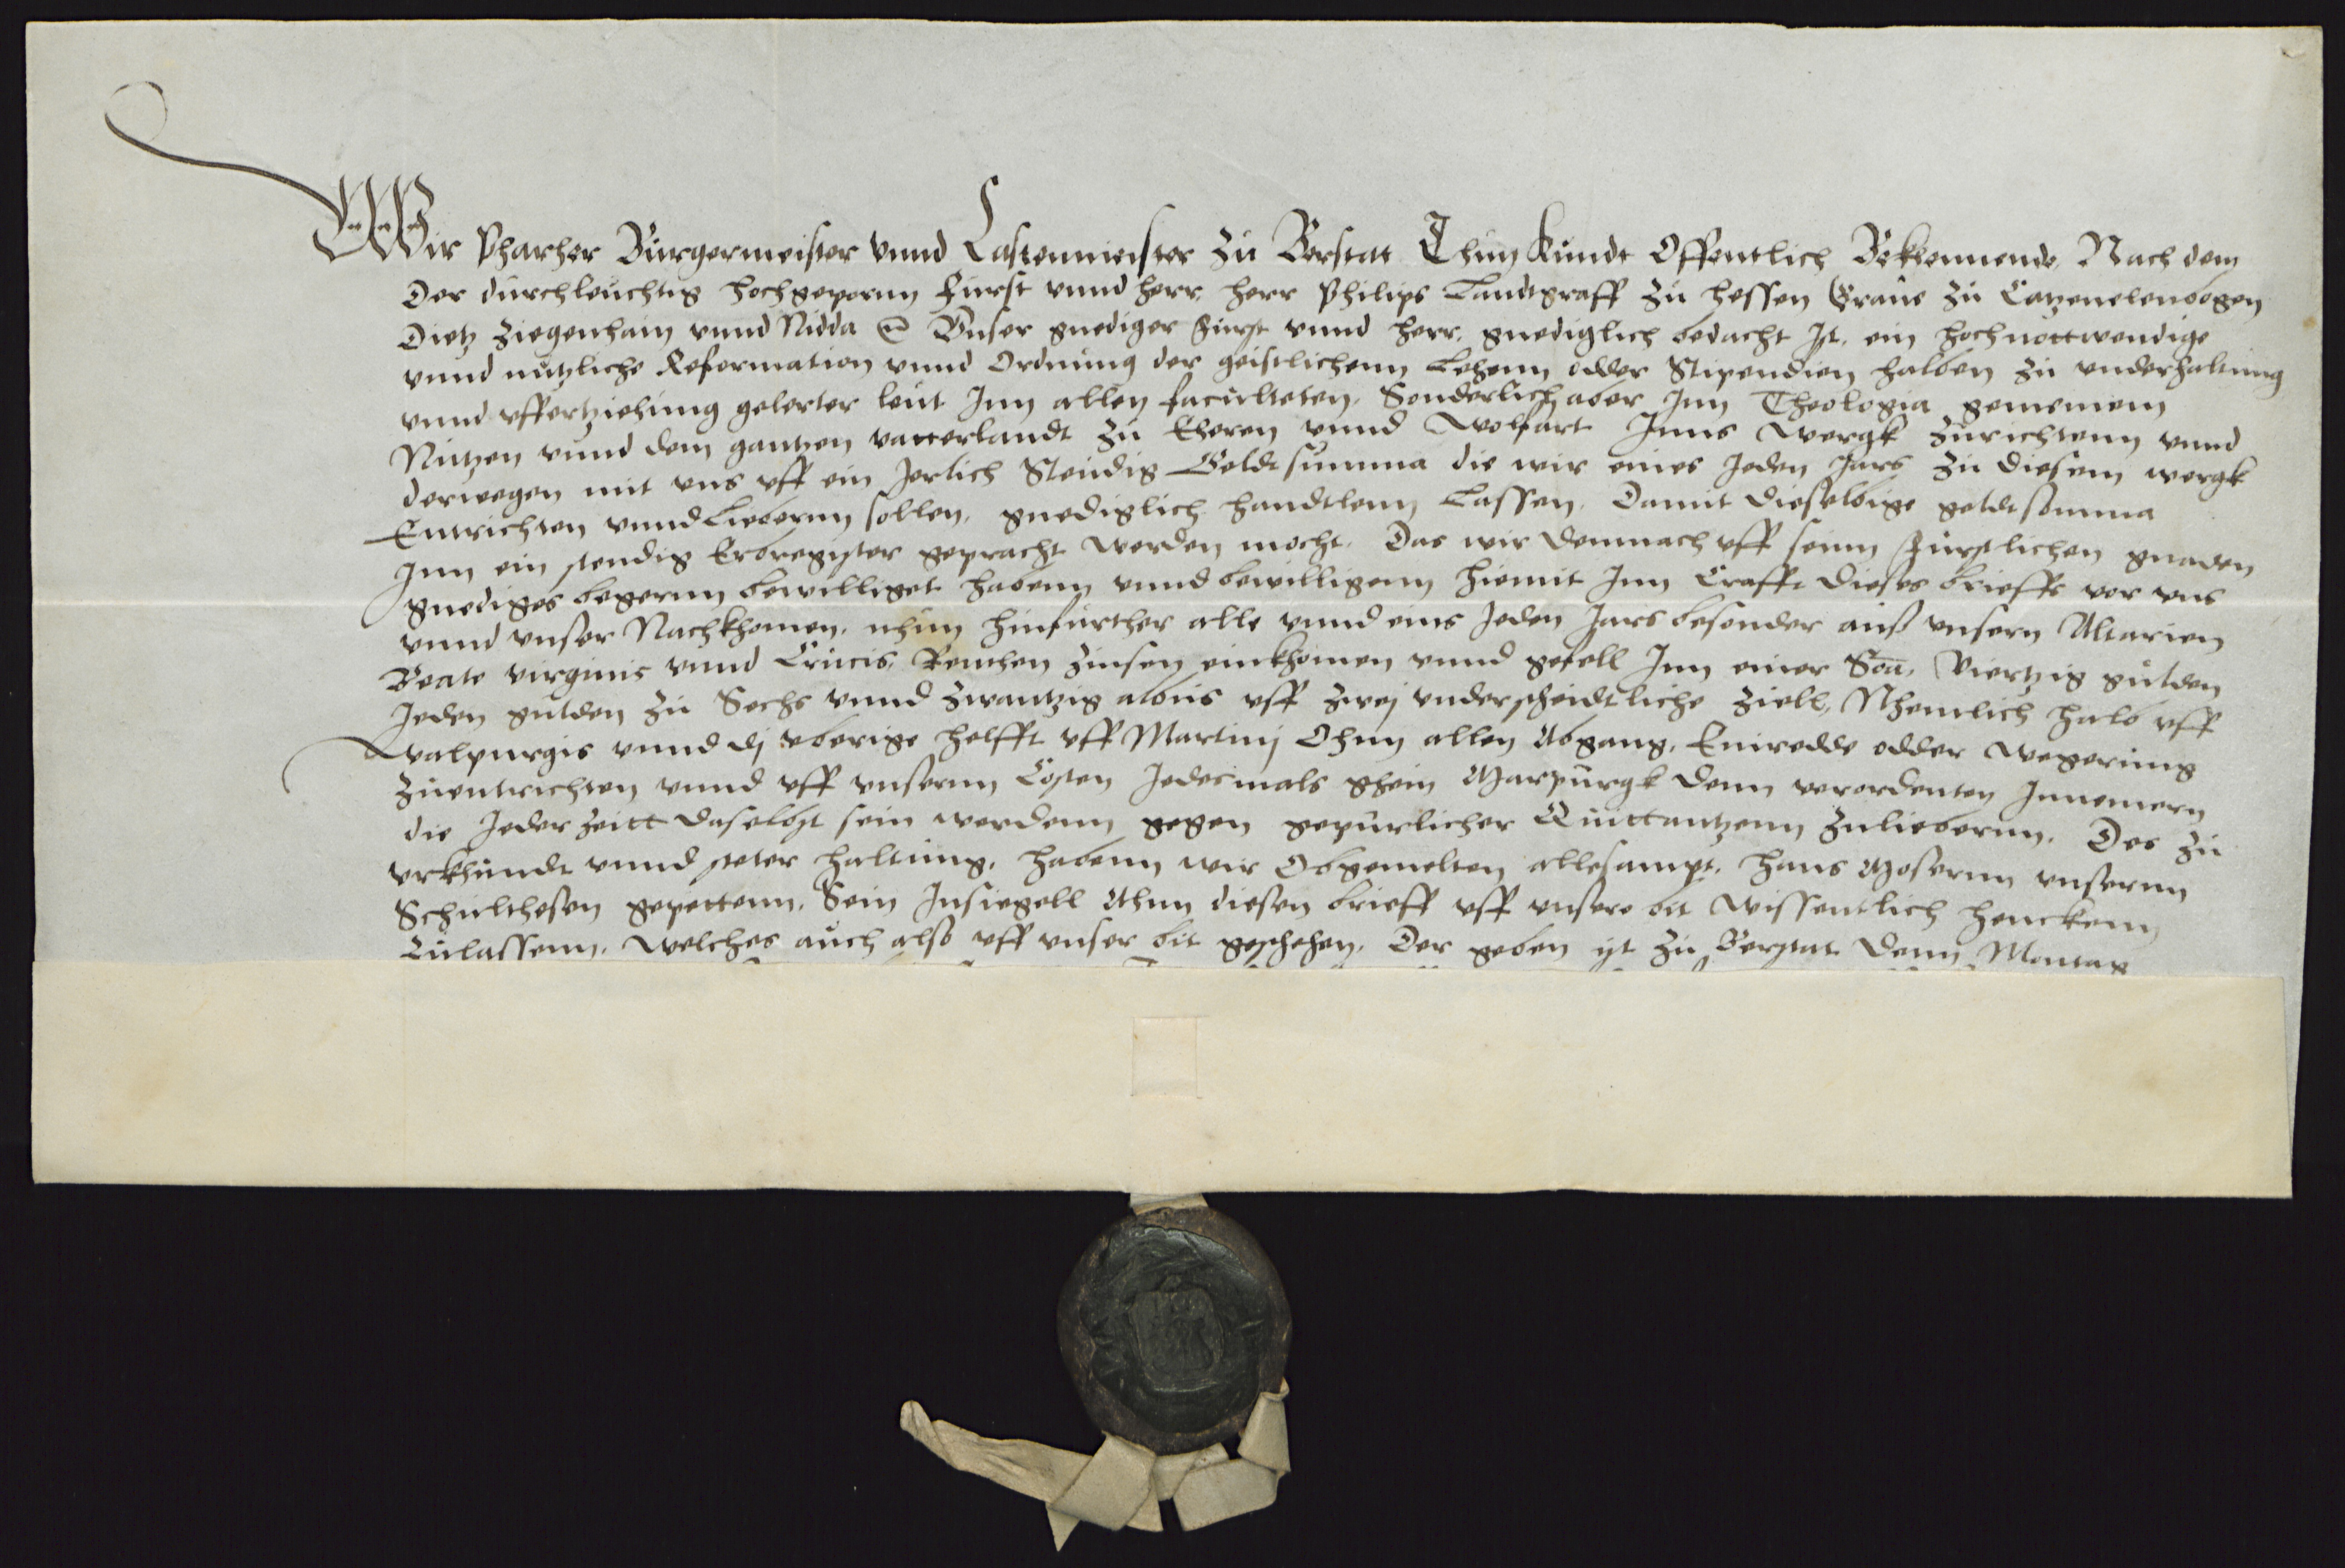 Wir Pharher Burgermeister vnnd Castenmeister zu Berstat Thun Kundt Offentlich Bekhennende, Nach dem
Der durchleuchtig hochgepornn Furst vnnd herr, herr Philips Landtgraff zu Hessen Graue zu Catzenelenbogen
Dietz Ziegenhain vnnd Nidda &c Vnser gnediger Furst vnnd herr, gnediglich bedacht Ist, ein hochnottwendige
vnnd nutzliche Reformation vnnd Ordnung der geistlichenn Lehenn odder Stipendien halben zu vnderhaltung
vnnd vffertziehung gelerter leut Inn allen faculteten, Sonderlich aber Inn Theologia gemeinem
Nutzen vnnd dem gantzen vatterlandt zu Eheren vnnd Wolfart Inns Wergk zurichtenn vnnd
derwegen mit vns vff ein Jerlich Stendig Geldtsumma die wir eines Jeden Jars zu diesem wergk
Entrichten vnnd Liebernn sollen, gnediglich handtlenn Lassen, Damit dieselbige geldtsomma
Inn ein stendig Erbregister gepracht werden mocht, Das wir demnach vff seinn Furstlichen gnaden
gnediges begernn bewilliget habenn vnnd bewilligenn hiemit Inn Crafft dieses brieffs vor vns
vnnd vnser Nachkhomen, nhun hinfurther alle vnnd eins Jeden Jars besonder auß vnsern Altarien
Beate virginis vnnd Crucis, Renthen Zinsen einkhomen vnnd gefell Inn einer Soa, Viertzig gulden
Jeden gulden zu Sechs vnnd zwantzig albus vff zwej vnderscheidtliche ziell, Nhemlich halb vff
Walpurgis vnnd dj vberige helfft vff Martinj Ohnn allen Abgang, Einredde odder wegerung
zuentrichten vnnd vff vnsernn Costen Jedesmals ghein Marpurgk denn verordenten Innemern
die Jeder zeitt daselbst sein werdenn gegen gepurlicher Quittantzenn zuliebernn. Des zu
vrkhundt vnnd steter haltung, habenn wir Obgemelten allesampt, Hans Mosernn vnsernn
Schulthesen gepettenn, Sein Insiegell Ahnn diesen brieff vff vnsere bit wissentlich hencken
Zulassenn, welches auch also vff vnser bit geschehen, Der geben ist zu Berstat denn Montag